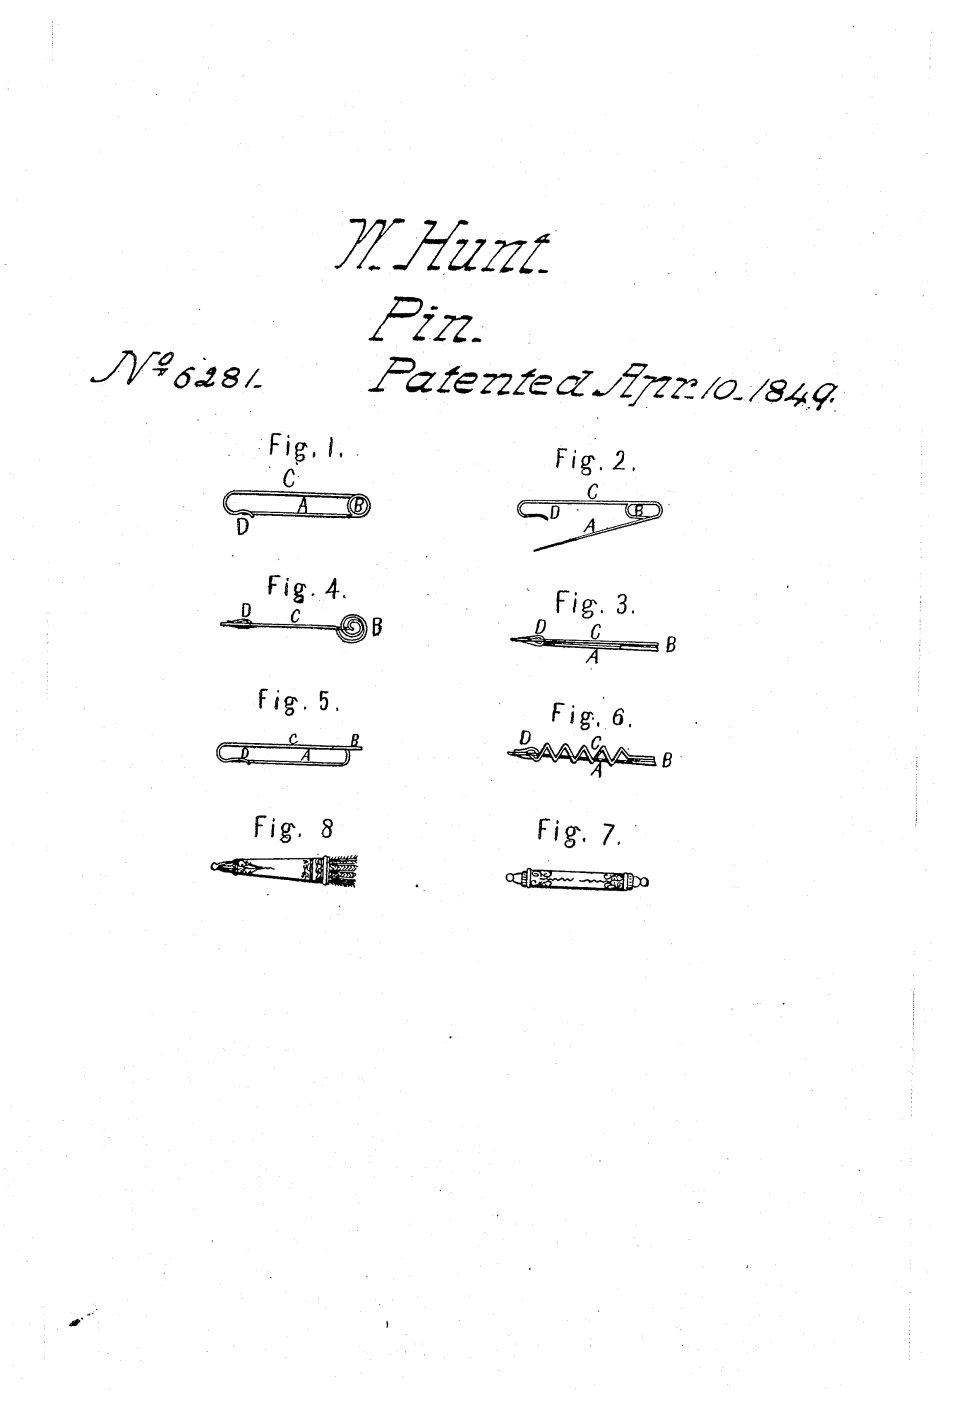 W. Hunt.
Pin.
Nº 6281. Patented Apr. 10. 1849.
Fig. 1. Fig. 2.
C C
A B D B
D A
Fig. 4. Fig. 3.
D C B D C B
A
Fig. 5. Fig. 6.
C B D C
D A A B
Fig. 8 Fig. 7.